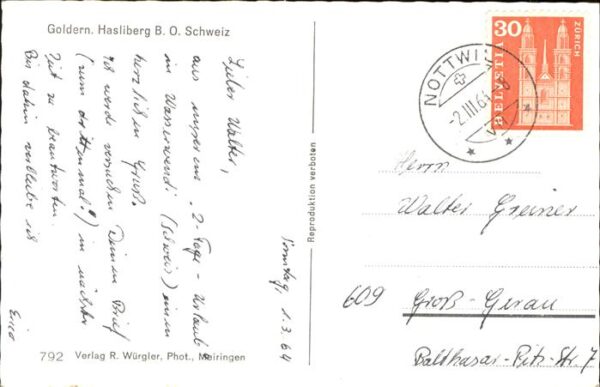 Goldern. Hasliberg B. O. Schweiz
Sonntag, 1.3.64
Lieber Walter,
aus unserem „2-Tage-Urlaub“
in Wasserwendi (Schweiz) einen
herzlichen Gruß.
Ich werde versuchen Deinen Brief
(zum dritten mal!) in nächster
Zeit zu beantworten.
Bis dahin verbleibe ich
792 Verlag R. Würgler, Phot., Meiringen
Reproduktion verboten
30
HELVETIA
ZÜRICH
NOTTWIL
-2.III.64
Herrn
Walter Greiner
609 Groß-Gerau
Balthasar-Pitz-Str. 7